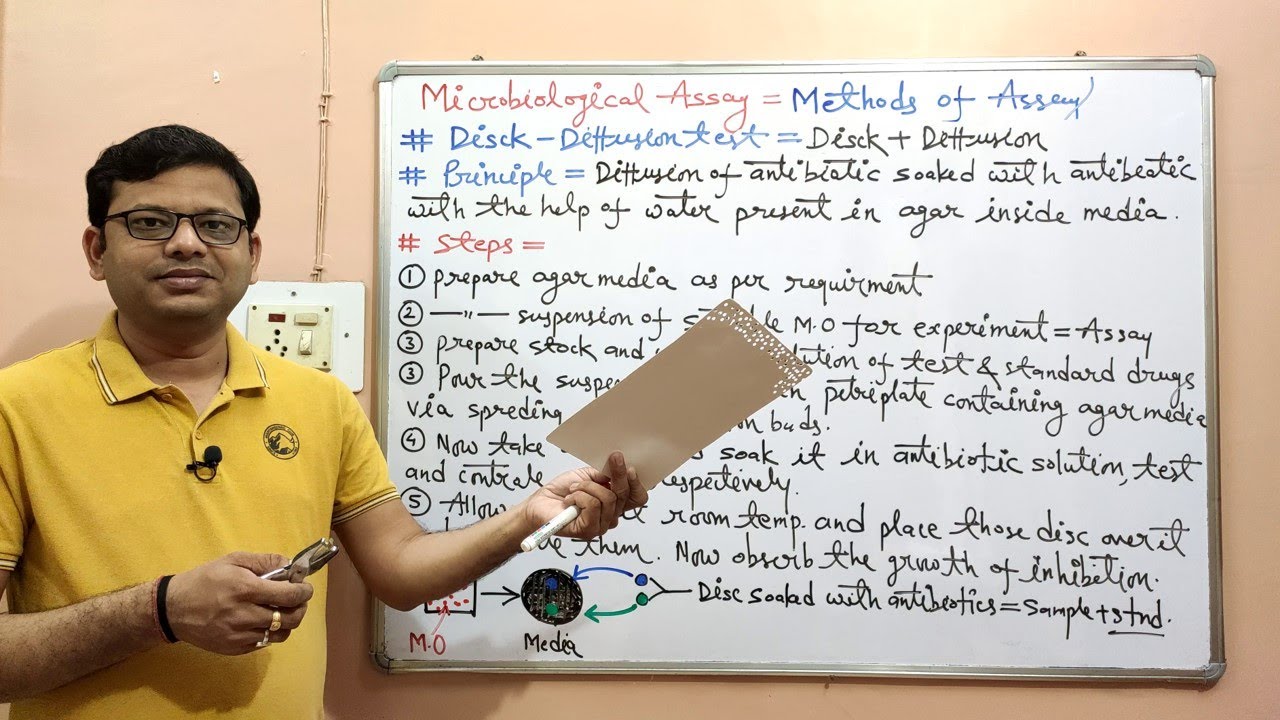 Microbiological Assay = Methods of Assay
# Disck - Diffusion test = Disck + Diffusion
# Principle = Diffusion of antibiotic soaked with antibeatic
with the help of water present in agar inside media.
# Steps =
① prepare agar media as per requirment
② —"— suspension of M.O for experiment = Assay
③ prepare stock and of test & standard drugs
③ Pour the petriplate containing agar media
via spreding buds.
④ Now take soak it in antibiotic solution, test
and contrale respectively.
⑤ Allow room temp. and place those disc over it
them. Now observb the growth of inhibetion.
Disc soaked with antibiotics = Sample + stnd.
M.O Media